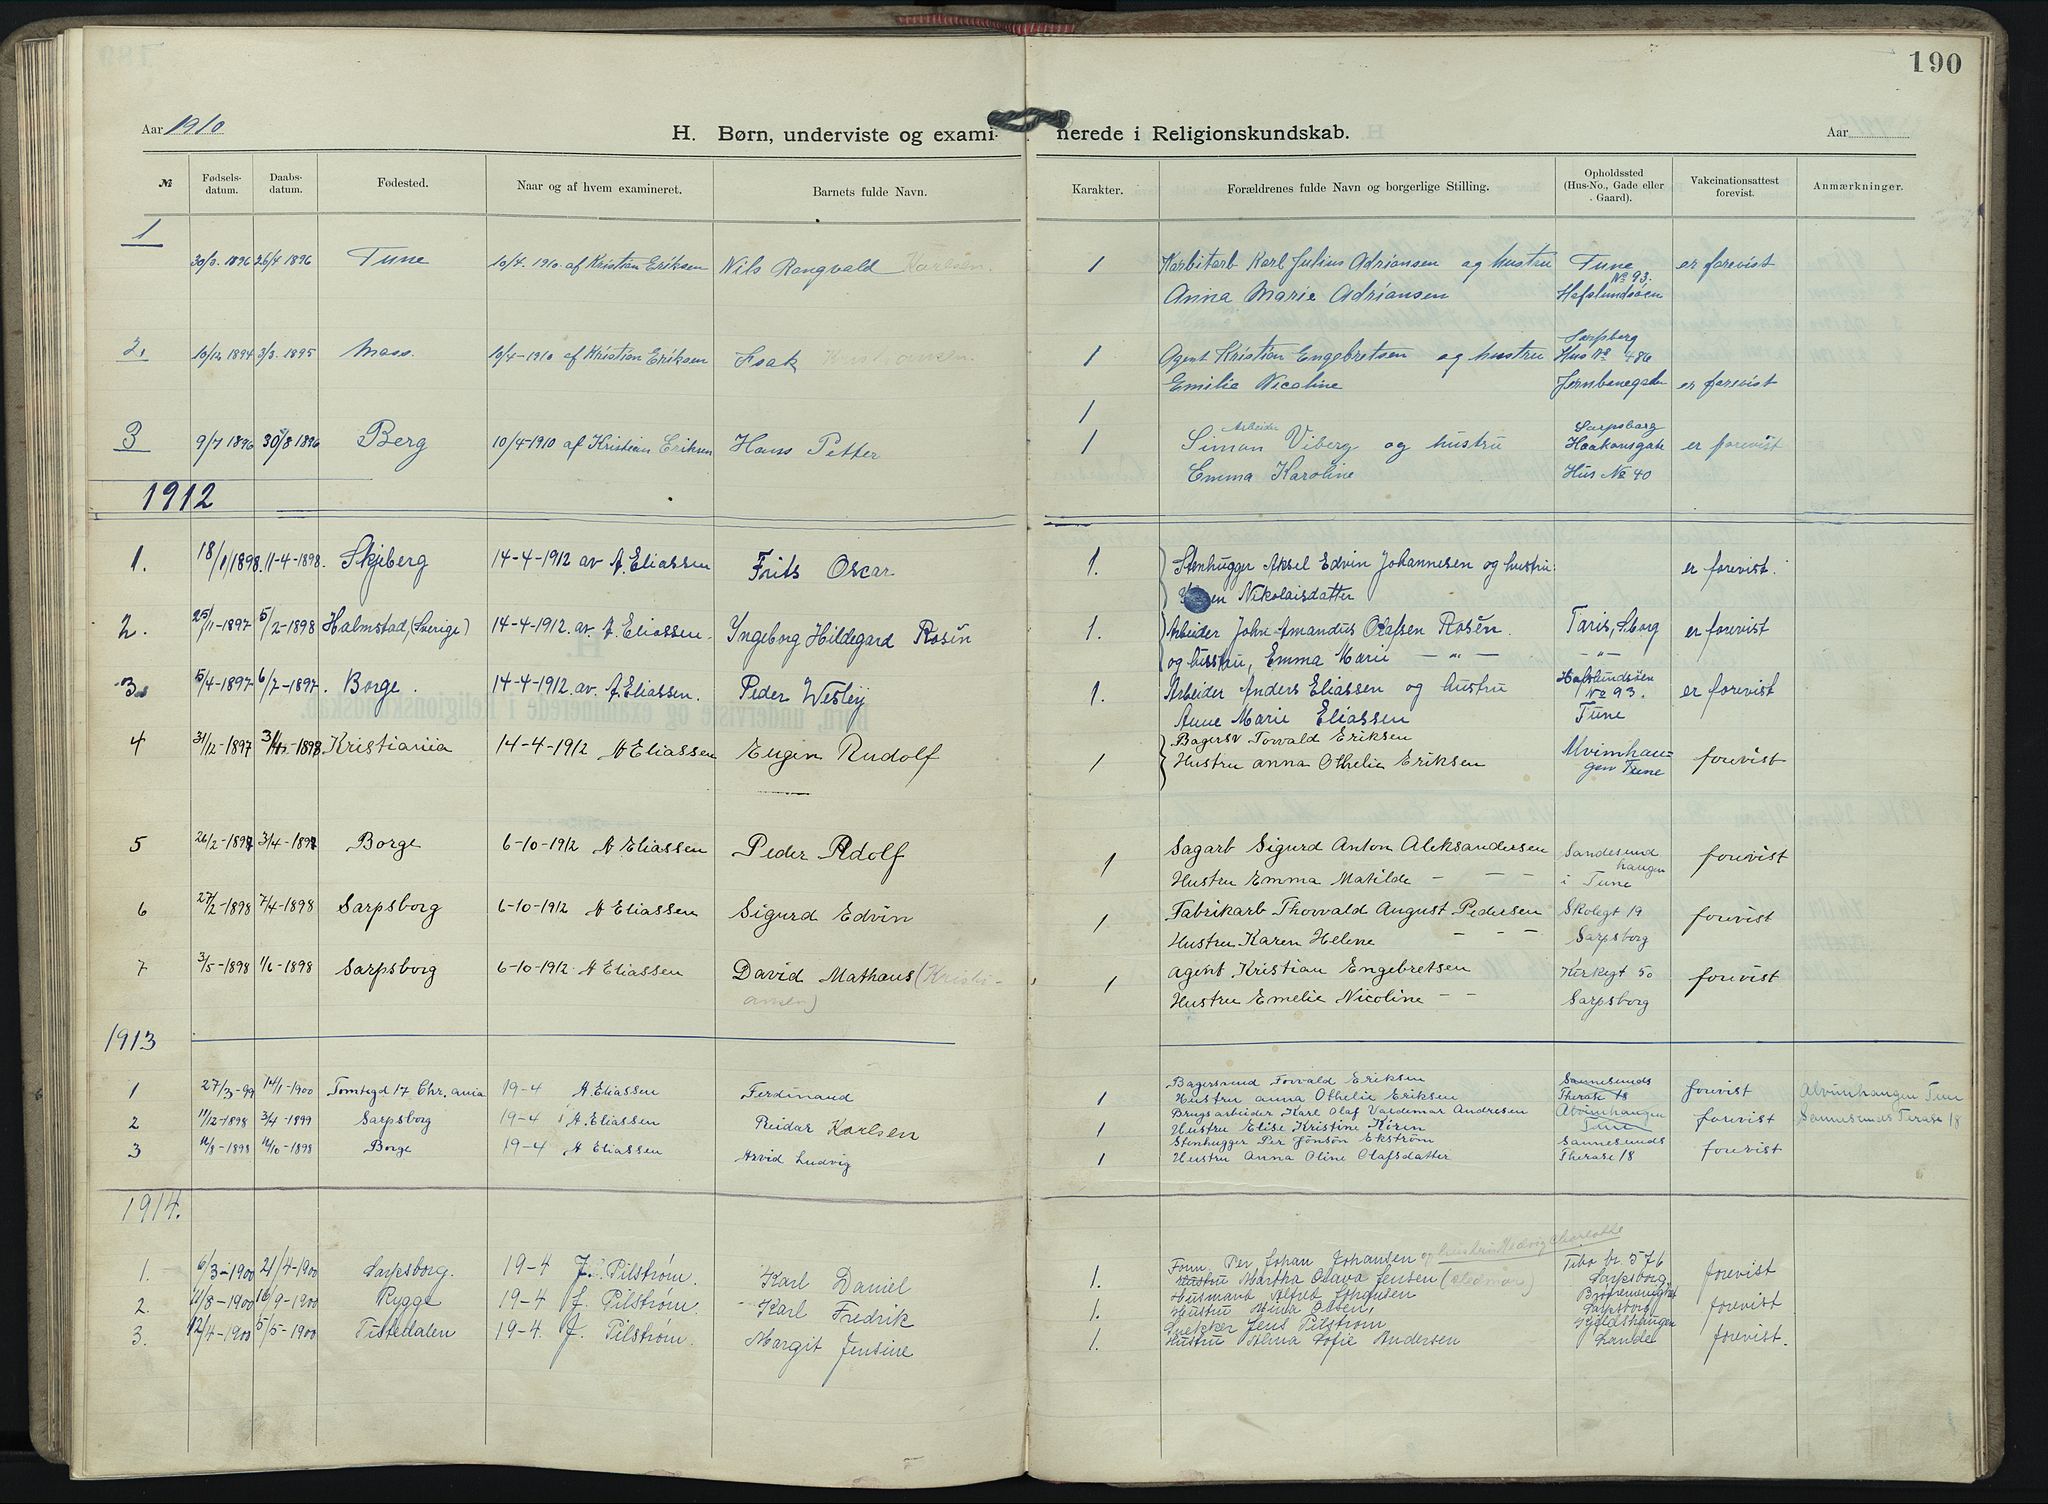 190
Aar 1910
H. Børn, underviste og exami- nerede i Religionskundskab.
Aar
№ Fødsels-datum. Daabs-datum. Fødested. Naar og af hvem examineret. Barnets fulde Navn. Karakter. Forældrenes fulde Navn og borgerlige Stilling. Opholdssted (Hus-No., Gade eller Gaard). Vakcinationsattest forevist. Anmærkninger.
1
30/3. 1896 26/4 1896 Tune 10/4. 1910 af Kristian Eriksen Nils Rangvald Karlsen. 1 Karl Julius Adriansen og hustru Tune er forevist
Anna Marie Adriansen № 93. Hafslundsøen
2. 10/12 1894 3/3. 1895 Moss. 10/4-1910 af Kristian Eriksen Isak 1 Agent Kristian Engebretsen og hustru Sarpsborg Hus № 486
Emilie Nicoline Jernbanegaden er forevist
1
3 9/7 1896 30/8 1896 Berg 10/4-1910 af Kristian Eriksen Hans Petter 1 Arbeider Simon Viberg og hustru Sarpsborg Haakonsgate er forevist
Emma Karoline Hus № 40
1912
1. 18/1 1898. 11-4-1898. Skjeberg 14-4-1912 av A. Eliassen Frits Oscar 1. Stenhugger Aksel Edvin Johannesen og hustru er forevist.
Nikolaisdatter
2. 25/11-1897 5/2-1898 Halmstad, (Sverige) 14-4-1912. av. A. Eliassen. Ingeborg Hildegard Rosén 1. Arbeider John Amandus Olafsen Rosén. Taris, Sborg er forevist
og husstru, Emma Marie — „ — — „ —
3. 5/4-1897 6/7-1897. Borge. 14-4-1912. av. A. Eliassen. Peder Wesley 1. Arbeider Anders Eliassen og hustru Hafslundsøen № 93. er forevist
Anne Marie Eliassen Tune
4 31/12-1897 Kristiania 14-4-1912 A Eliassen Eugen Rudolf 1 Bagersv Torvald Eriksen
Hustru Anna Othelie Eriksen Alvimhaugen Tune forevist
5 26/2-1897 3/4-1897 Borge 6-10-1912 A Eliassen Peder Adolf 1 Sagarb Sigurd Anton Aleksandersen Sandesund haugen forevist
Hustru Emma Matilde - - - i Tune
6 27/2-1898 7/4-1898 Sarpsborg 6-10-1912 A Eliassen Sigurd Edvin 1 Fabrikarb Thorvald August Pedersen Skolegt 19 forevist
Hustru Karen Helene - - - Sarpsborg
7 3/5-1898 1/6-1898 Sarpsborg 6-10-1912. A Eliassen David Mathæus (Kristi- 1 Agent. Kristian Engebretsen Kirkegt 50 forevist
ansen) Hustru Emelie Nicoline - - Sarpsborg
1913
1 27/3-99 14/1-1900 Tomtegd 17 Chr.ania 19-4 A Eliassen Ferdinand 1 Bagersvend Torvald Eriksen Sannesunds forevist Alvimhaugen Tune
Hustru Anna Othelie Eriksen Therase 18
2 11/12-1898 3/4-1899 Sarpsborg 19-4 A. Eliassen Reidar Karlsen 1 Brugsarbeider Karl Olaf Valdemar Andresen Alvimhaugen forevist Sannesunds Terase 18
Hustru Elise Kristine Tune
3 12/8-1898 Borge 19-4 A Eliassen Arvid Ludvig 1 Stenhugger Per Jonson Ekström Sannesunds forevist
Hustru Anna Oline Olafsdatter Therase 18
1914.
1. 6/3-1900 21/4-1900 Sarpsborg. 19-4 J. Pilstrøm. Karl Daniel 1. Form. Per Johan Johansen og hustru Hedvig Charlotte 576 forevist
Hustru Martha Olava Jensen Sarpsborg
2. 11/8-1900 16/9-1900 Rygge 19-4 J. Pilstrøm. Karl Fredrik 1. Husmand Alfred Johansen forevist
Hustru Mina Olsen, Sarpsborg
3. 12/4-1900 5/5-1900 Tistedalen 19-4. J. Pilstrøm Margit Jensine 1. Snekker Jens Pilstrøm forevist.
Hustru Sofie Andersen Sande